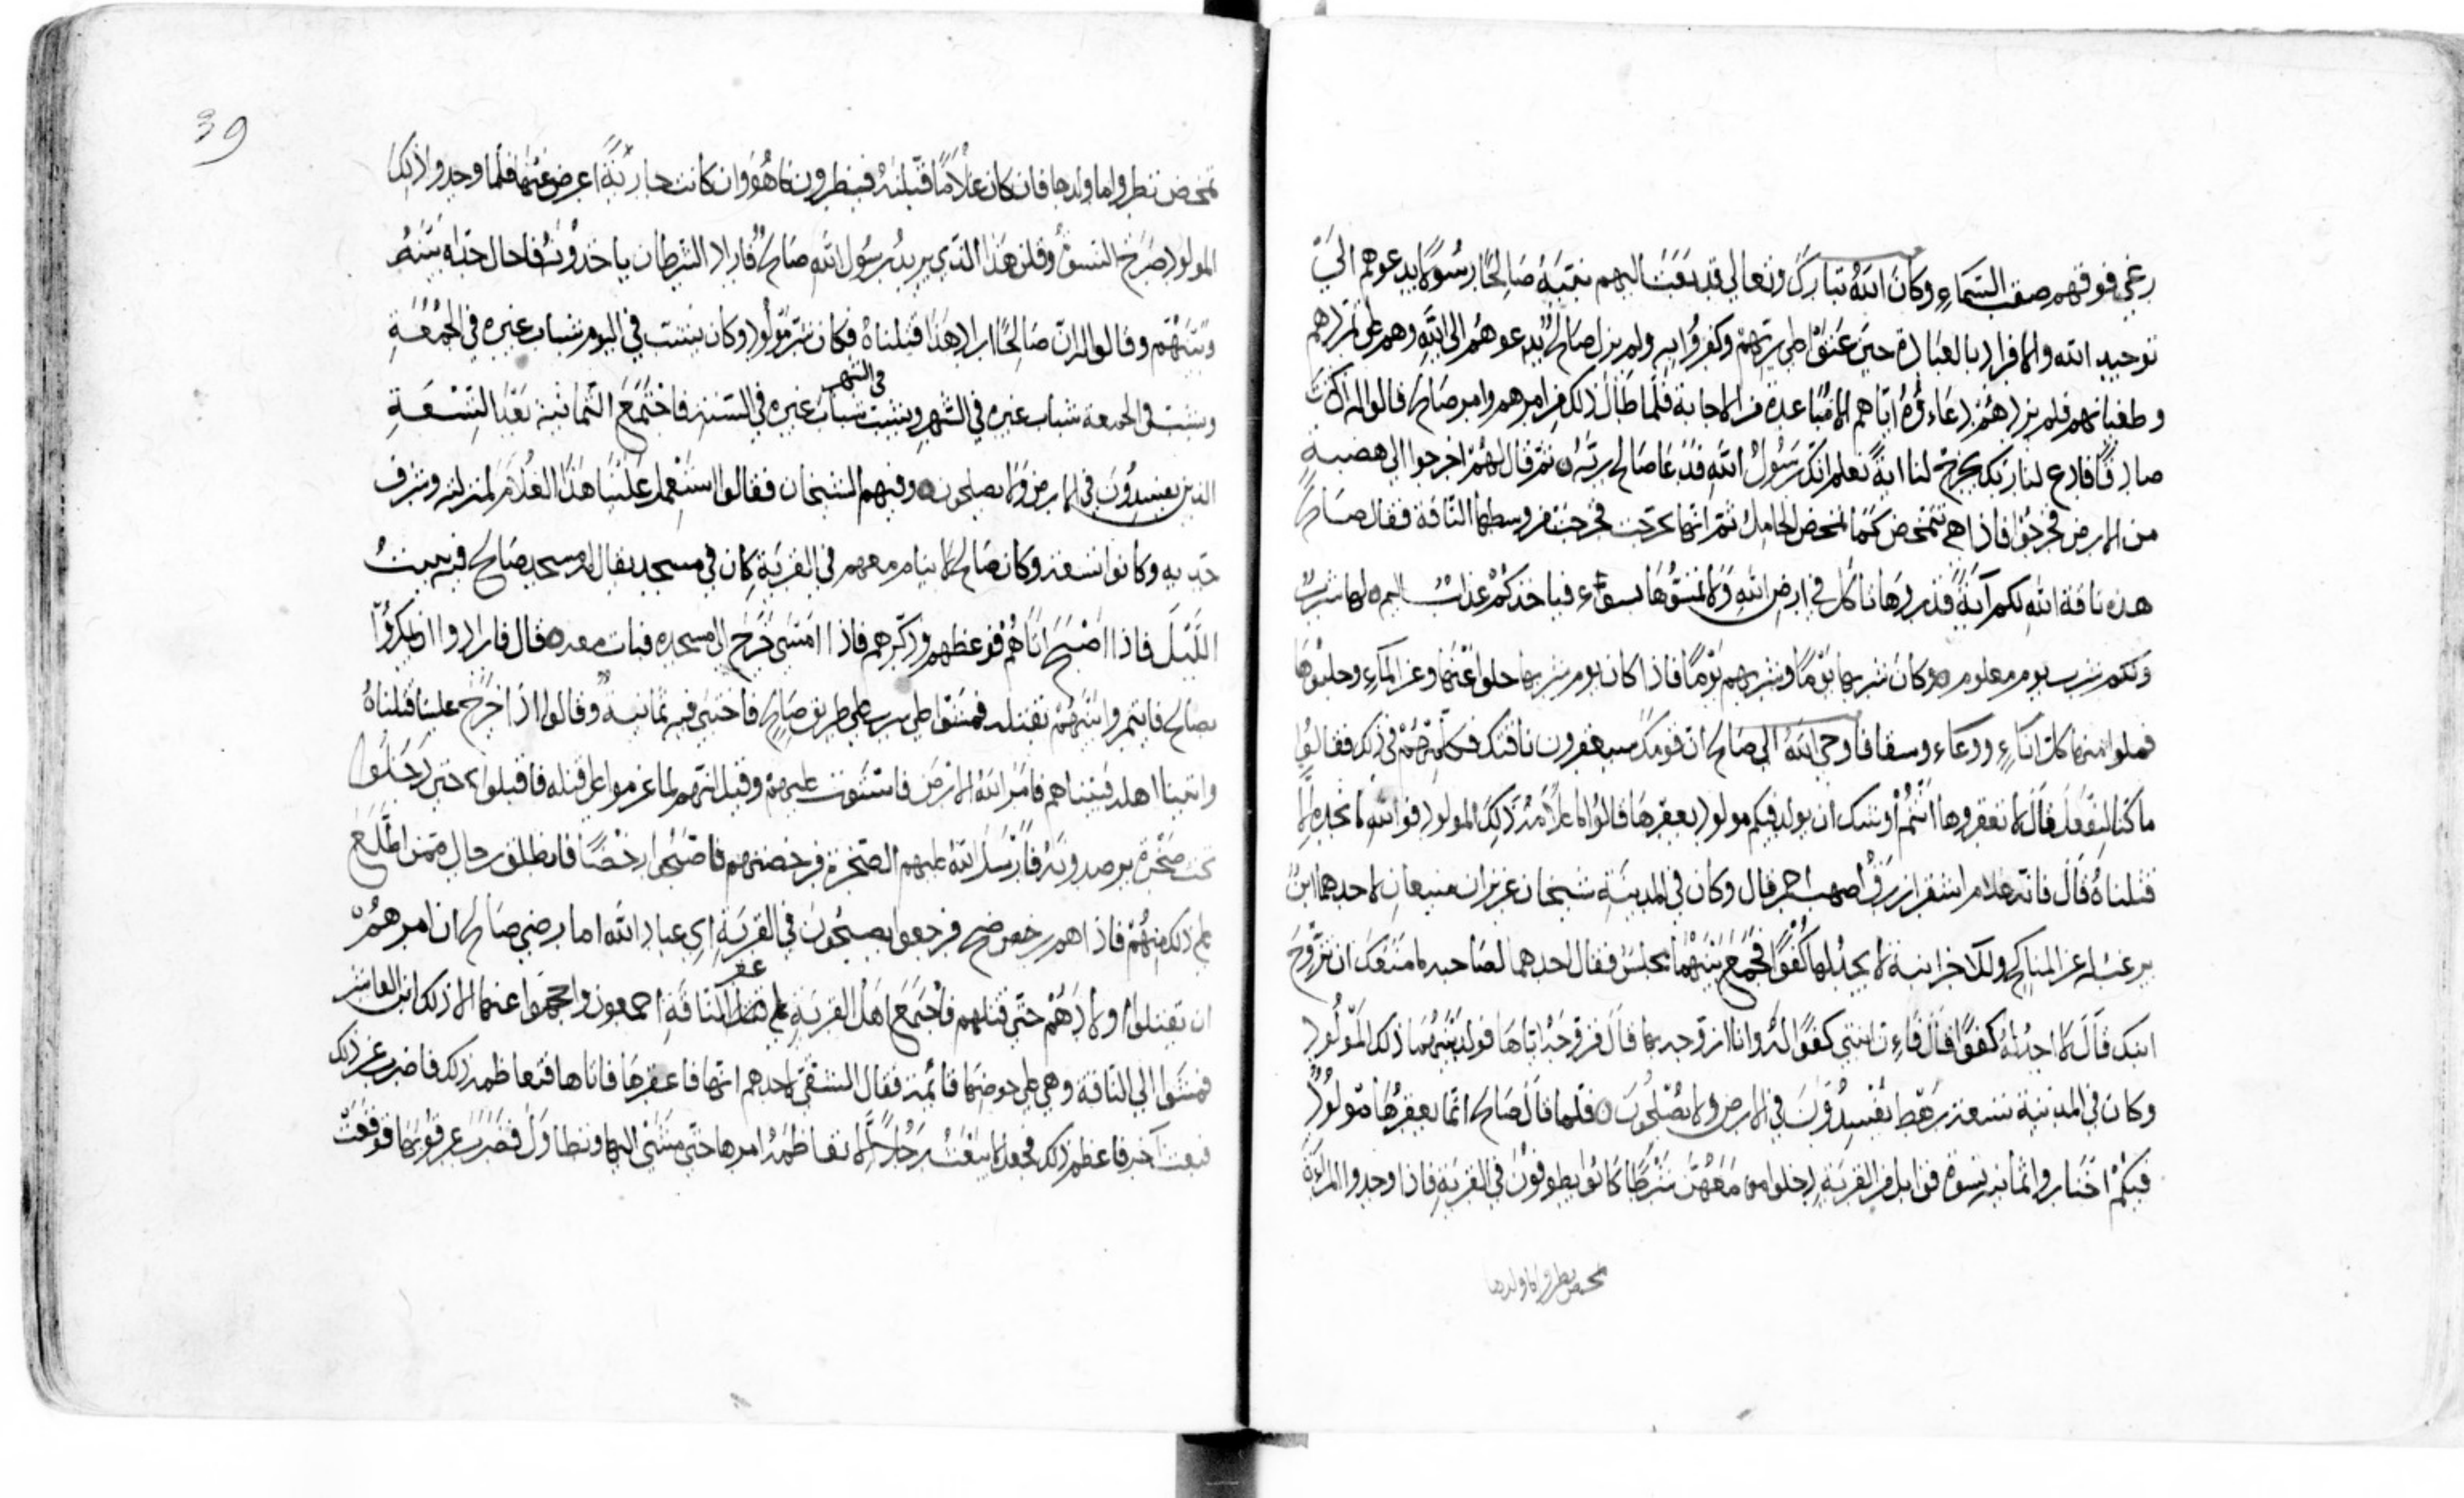 رغى فوقهم صقب السماء وكان الله تبارك وتعالى قد بعث اليهم نبيّه صالحًا رسولًا يدعوهم الى
توحيد الله والافراد بالعبادة حين عتوا على ربّهم وكفروا به ولم يزل صالح يدعوهم الى الله وهم على تمردهم
وطغيانهم فلم يزدهم دعاءؤه ايّاهم الا مُباعدة من الاجابة فلمّا طال ذلك من امرهم وامر صالح قالوا له ان كنت
صادقًا فادع لنا ربك يخرج لنا اية نعلم انك رسول الله فدعا صالح ربّه ثم قال لهم اخرجوا الى هضبة
من الارض فخرجوا فاذا هي تتمخض كما تمخض الحامل ثم انها تفرجت فخرجت من وسطها الناقة فقال صالح
هذه ناقة الله لكم آية فذروها تاكل في ارض الله ولا تمسّوها بسوء فياخذكم عذاب اليم لها شرب
ولكم شرب يوم معلوم وكان شربها يومًا وشربهم يومًا فاذا كان يوم شربها خلوا عنها وعن الماء وحلبوها
فملوا منها كل اناء ووعاء وسقا فاوحى الله الى صالح ان قومك سيعقرون ناقتك فكلّمهم في ذلك فقالوا
ما كنا لنفعل قال الا تعقروها انتم اوشك ان يولد فيكم مولود يعقرها قالوا ما علامة ذلك المولود فوالله لا نجده الا
قتلناه قال فانه غلام اشقر ازرق اصهب احمر قال وكان في المدينة شيخان عزيزان منيعان لاحدهما ابن
يرغب له عن المناكح وللاخر ابنة لا يجد لها كفوًا فجمع بينهما مجلس فقال احدهما لصاحبه ما منعك ان تزوج
ابنك قال لا اجد له كفوًا قال فاءن ابنتي كفو له وانا ازوجه بها قال فزوجه اياها فولد بينهما ذلك المولود
وكان في المدينة تسعة رهط يفسدون في الارض ولا يصلحون فلما قال صالح انما يعقرها مولود
فيكم اختاروا ثمانية نسوة قوابل من القرية وجعلوا معهن شرطًا كانوا يطوفون في القرية فاذا وجدوا المراة
تمخض نظروا ما ولدها
39
تمخض نظروا ما ولدها فان كان غلامًا قبّلنه فينظرون ما هو وان كانت جارية اعرض عنها فلما وجدوا ذلك
المولود صرخ النسوة وقلن هذا الذي يريد رسول الله صالح فاراد الشرطان ياخذونه فحال جدّاه بينه
وبينهم وقالوا لو ان صالحًا اراد هذا قتلناه فكان شر مولود وكان يشبّ في اليوم شباب غيره في الجمعة
ويشب في الجمعة شباب غيره في الشهر ويشب في الشهر شباب غيره في السنة فاجتمع الثمانية بعد التسعة
الذين يفسدون في الارض ولا يصلحون وفيهم الشيخان فقالوا استعمل علينا هذا الغلام لمنزلته وشرف
جدّيه وكانوا تسعة وكان صالح لا ينام معهم في القرية كان في مسجد يقال له مسجد صالح فيه يبيت
اللّيل فاذا اصبح اتاهم فوعظهم وذكّرهم فاذا امسى خرج الى مسجده فبات معه قال فارادوا ان يمكروا
بصالح فايتمروا بينهم بقتله فمشوا حتى اتوا على سرب على طريق صالح فاختبى فيه ثمانية وقالوا اذا خرج علينا قتلناه
واتينا اهله فبيّتناهم فامر الله الارض فاستوت عليهم وقيل انهم لما عزموا على قتله فاقبلوا حتى دخلوا
تحت صخرة يرصدونه فارسل الله عليهم الصخرة فرضختهم فاصبحوا رضخًا فانطلق رجال ممن اطّلع
على ذلك منهم فاذا هم رضخ فرجعوا يصيحون في القرية اي عباد الله اما رضي صالح ان امرهم
ان يقتلوا ولادهم حتى قتلهم فاجتمع اهل القرية على عقر الناقة اجمعون واحجموا عنها الا ذلك ابن العاشر
فمشوا الى الناقة وهي على حوضها قائمة فقال الشقي لاحدهم ائتها فاعقرها فاتاها فتعاظمه ذلك فاضرب عن ذلك
فبعث آخر فاعظم ذلك فجعل لا يبعث رجلًا الا تعاظمه امرها حتى مشى اليها وتطاول فضرب عرقوبها فوقعت